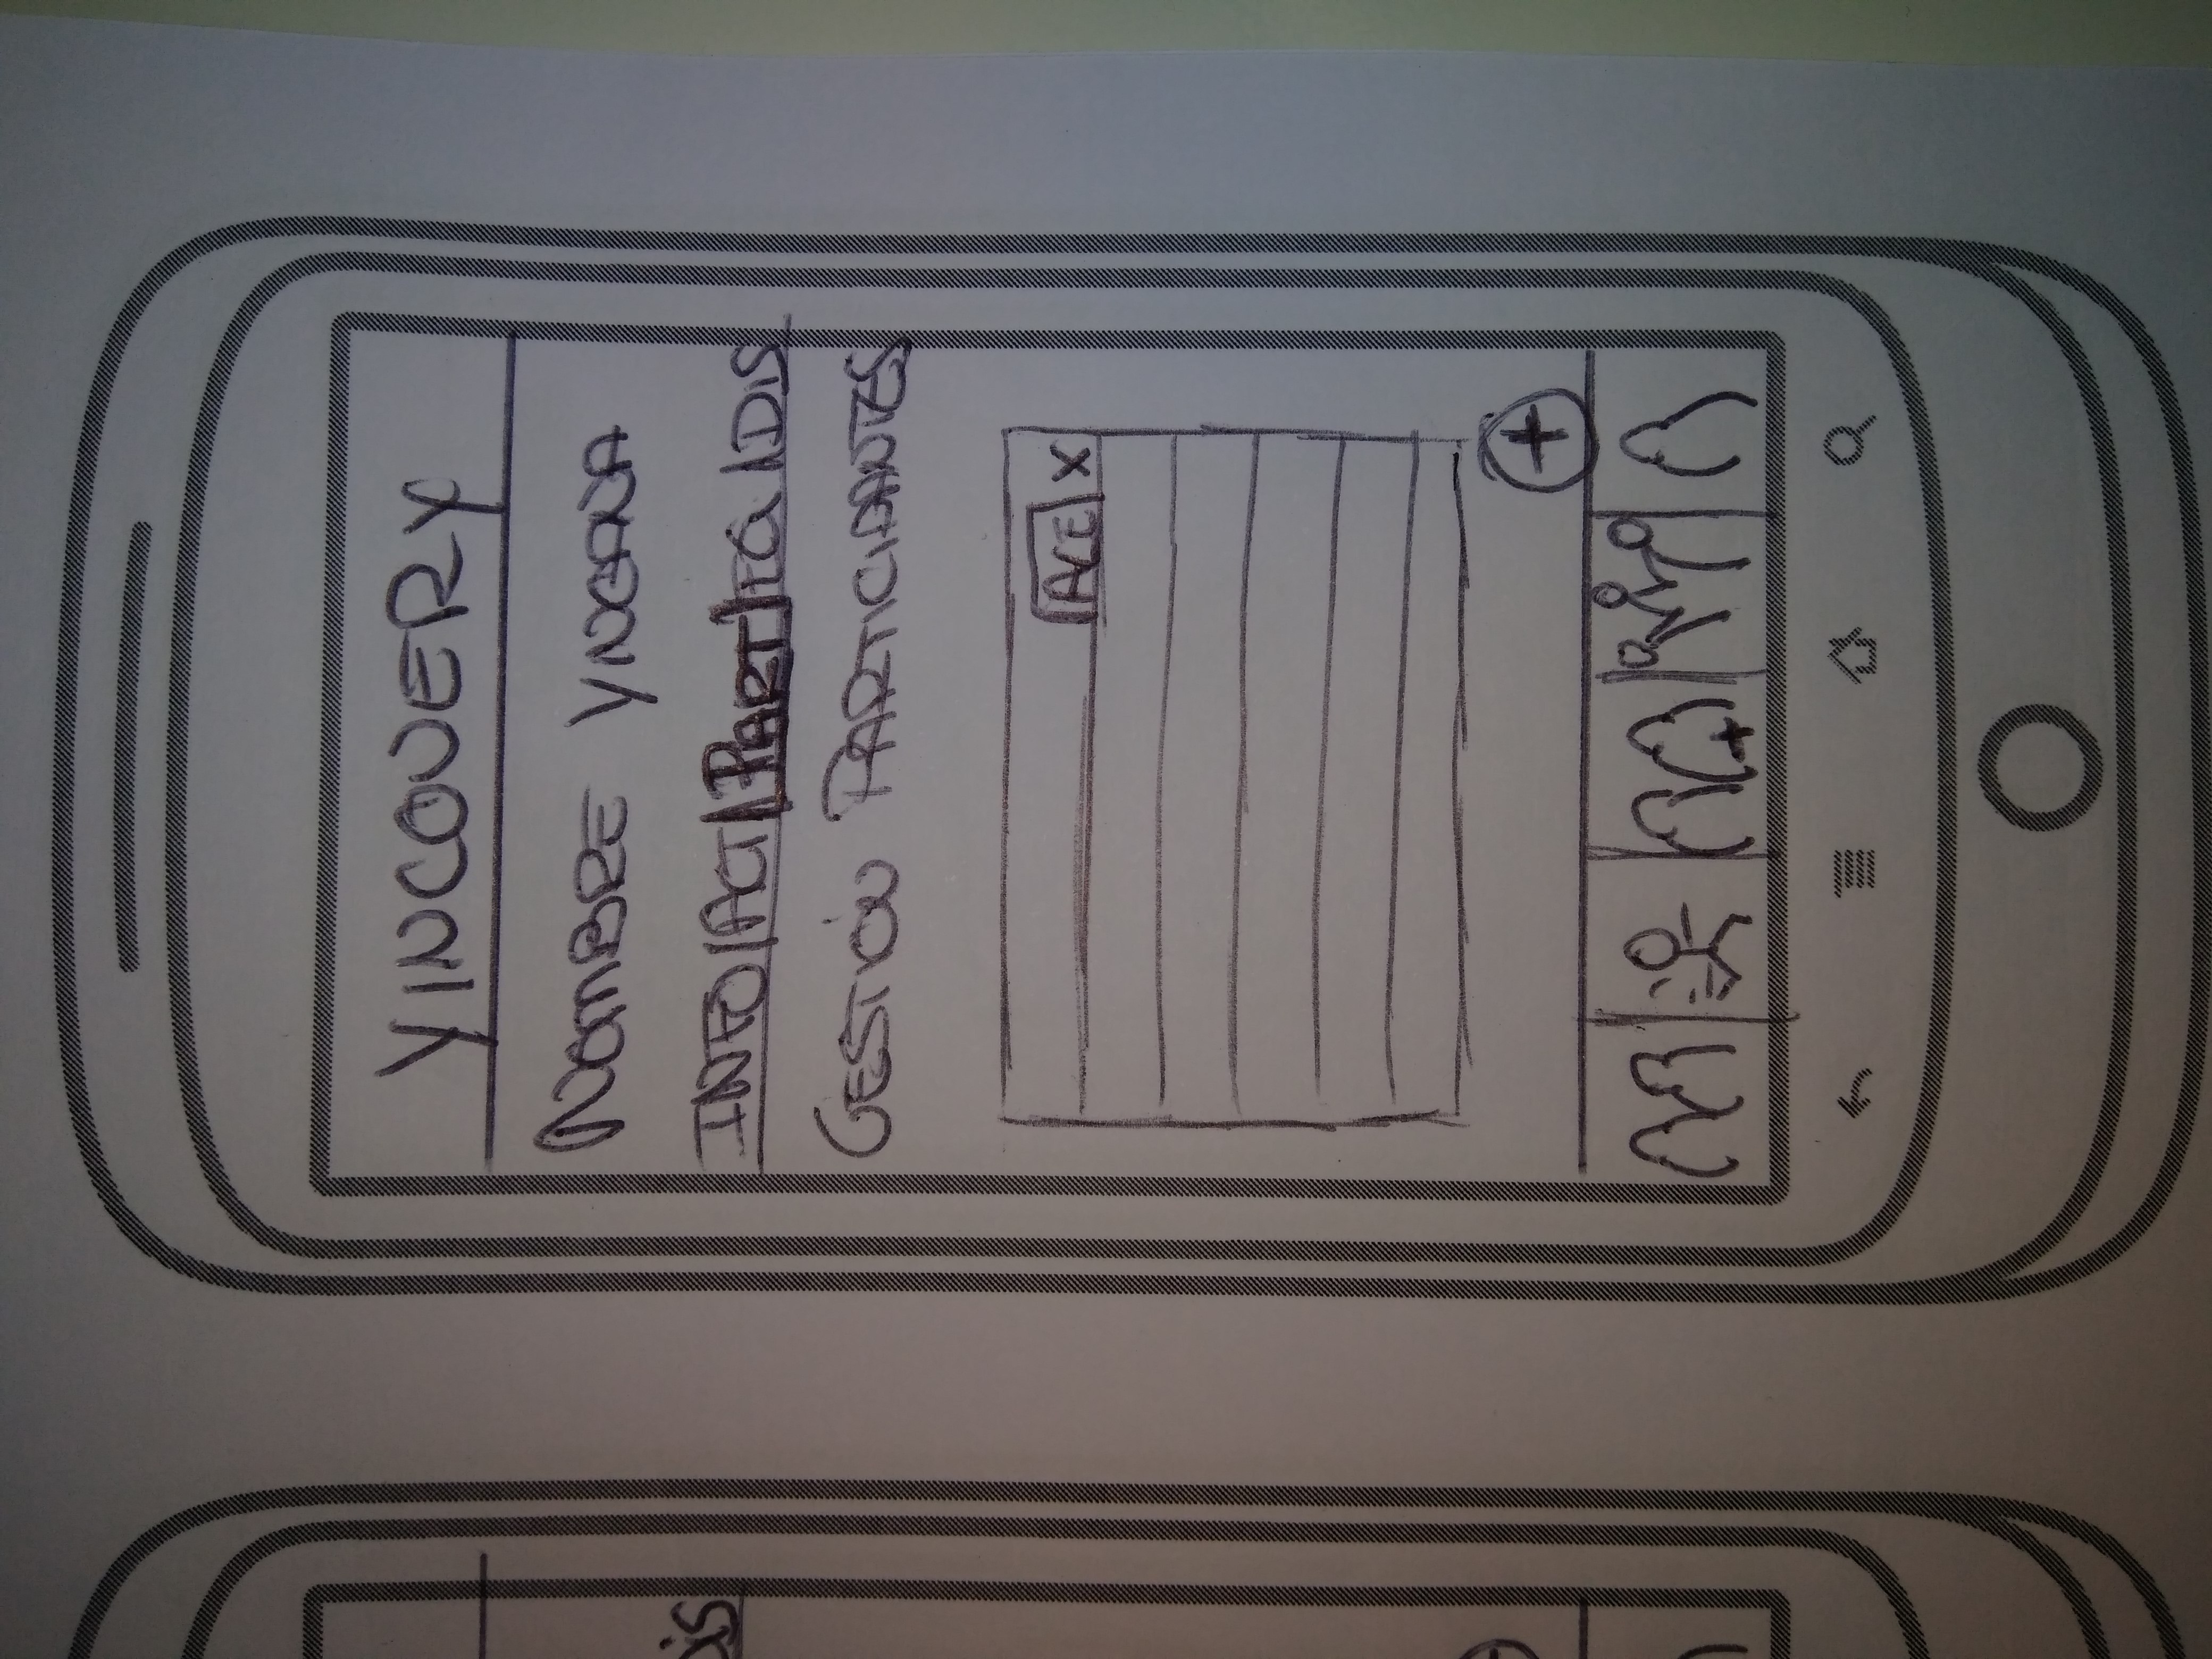 YINCOVERY
NOMBRE YNCANA
INFO/ACT/PART/EQ/DIS
GESTIÓN PARTICIPANTES
ACE X
+
DIS